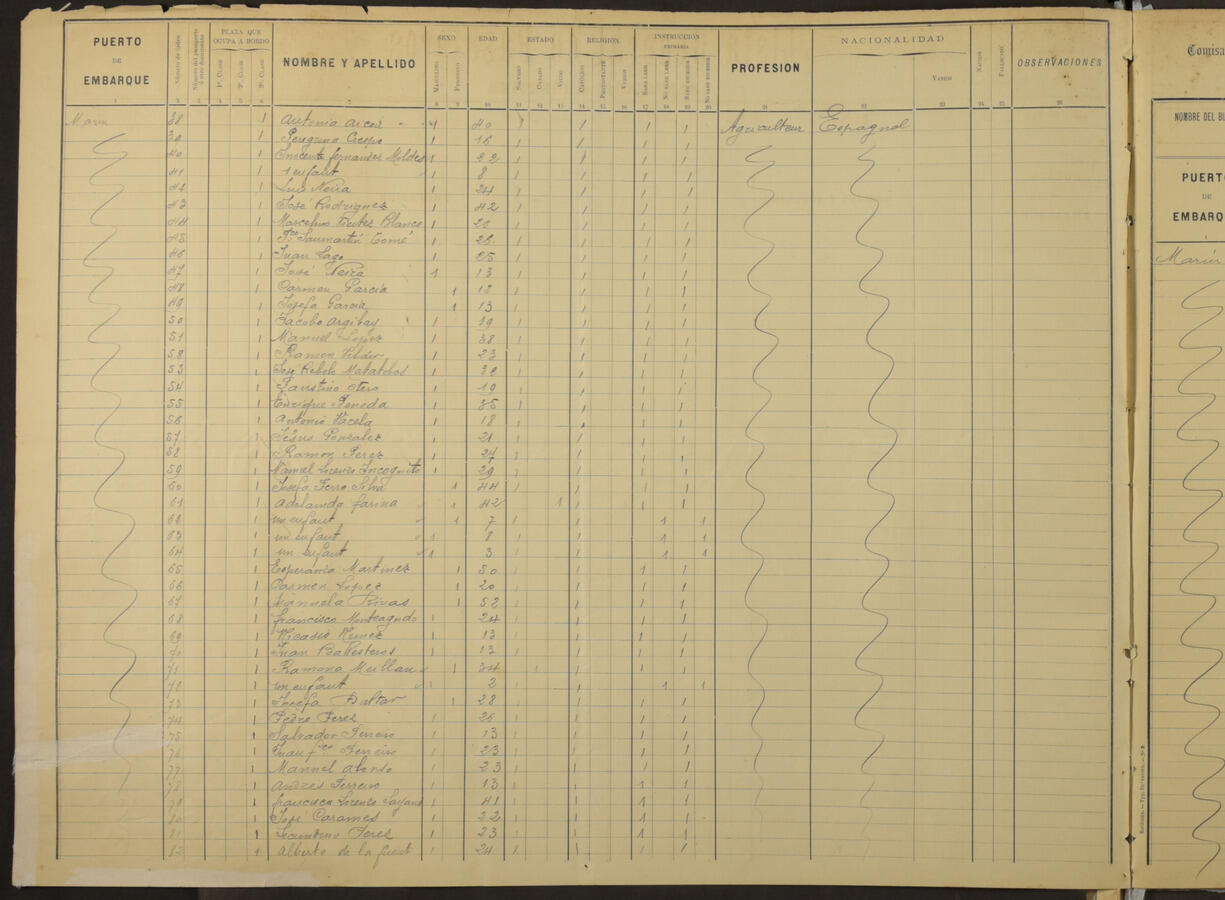 PUERTO DE EMBARQUE
PLAZA QUE OCUPA A BORDO
NOMBRE Y APELLIDO
SEXO
EDAD
ESTADO
RELIGION
INSTRUCCION PRIMARIA
PROFESION
NACIONALIDAD
VARIOS
OBSERVACIONES
Marin 38 1 Antonia 1 40 1 1 1 1 Agriculteur Espagnol
39 1 Peregrino Crespo 1 16 1 1 1 1
40 1 Inocente fernandez Moldes 1 22 1 1 1 1
41 1 1 enfant 1 8 1 1 1 1
42 1 Luis Neira 1 24 1 1 1 1
43 1 José Rodriguez 1 42 1 1 1 1
44 1 Marcelino Fuentes Blanco 1 20 1 1 1 1
45 1 Fco Saumartin Tomé 1 26 1 1 1 1
46 1 Juan Lago 1 25 1 1 1 1
47 1 José Neira 1 13 1 1 1 1
48 1 Carmen Garcia 1 12 1 1 1 1
49 1 Josefa Garcia 1 13 1 1 1 1
50 1 Jacobo Argibay 1 19 1 1 1 1
51 1 Manuel Lopez 1 38 1 1 1 1
52 1 Ramon 1 23 1 1 1 1
53 1 José Rebolo 1 32 1 1 1 1
54 1 Faustino Otero 1 19 1 1 1 1
55 1 Enrique 1 35 1 1 1 1
56 1 Antonio Varela 1 18 1 1 1 1
57 1 Jesus Gonzalez 1 21 1 1 1 1
58 1 Ramon Perez 1 24 1 1 1 1
59 1 Manuel Lorenzo Incognito 1 29 1 1 1 1
60 1 Josefa Ferro Silva 1 44 1 1 1 1
61 1 Adelaida farina 1 42 1 1 1 1
62 1 un enfant 1 7 1 1 1 1
63 1 un enfant 1 8 1 1 1 1
64 1 un enfant 1 3 1 1 1 1
65 1 Esperanza Martinez 1 50 1 1 1 1
66 1 Carmen Lopez 1 20 1 1 1 1
67 1 Manuela Rivas 1 52 1 1 1 1
68 1 francisco Monteagudo 1 24 1 1 1 1
69 1 Nicasio Nunez 1 13 1 1 1 1
70 1 Juan Ballesteros 1 13 1 1 1 1
71 1 Ramona Meillan 1 34 1 1 1 1
72 1 un enfant 1 2 1 1 1 1
73 1 Josefa Baltar 1 28 1 1 1 1
74 1 Pedro Perez 1 26 1 1 1 1
75 1 Salvador Ferreiro 1 13 1 1 1 1
76 1 Juan fco Ferreiro 1 23 1 1 1 1
77 1 Manuel Alonso 1 23 1 1 1 1
78 1 Andres Ferreiro 1 13 1 1 1 1
79 1 francisco Lorenzo 1 41 1 1 1 1
80 1 José Carames 1 22 1 1 1 1
81 1 Secundino Perez 1 23 1 1 1 1
82 1 Alberto de la fuent 1 24 1 1 1 1
Comisa
NOMBRE DEL BU
PUERT
DE
EMBARQ
Marin